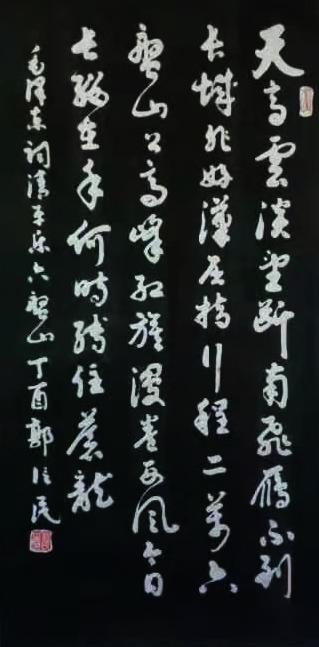 天高雲淡望斷南飛雁不到
長城非好漢屈指行程二萬六
盤山上高峰紅旗漫卷西風今日
長纓在手何時縛住蒼龍
毛澤東詞清平樂六盤山丁酉郭信民